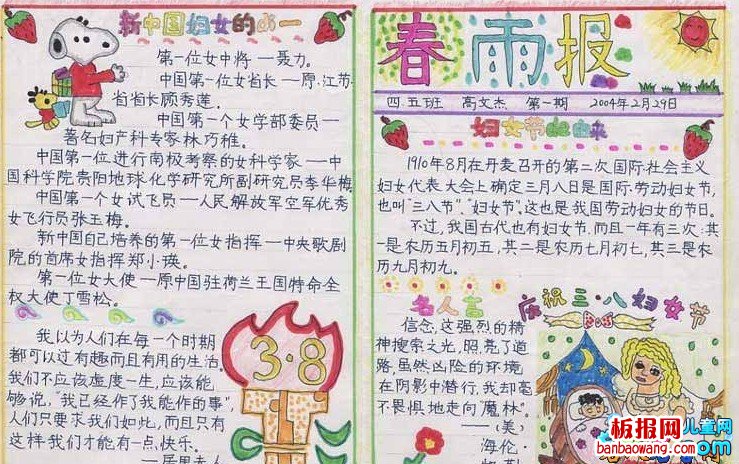 新中国妇女的第一
第一位女中将——聂力。
中国第一位女省长——原·江苏
省省长顾秀莲。
中国第一个女学部委员——
著名妇产科专家林巧稚。
中国第一位进行南极考察的女科学家——中
国科学院贵阳地球化学研究所副研究员李华梅
中国第一个女试飞员——人民解放军空军优秀
女飞行员张玉梅。
新中国自己培养的第一位女指挥——中央歌剧
院的首席女指挥郑小瑛。
第一位女大使——原中国驻荷兰王国特命全
权大使丁雪松。
我以为人们在每一个时期
都可以过有趣而且有用的生活。
我们不应该虚度一生,应该能
够说,“我已经作了我能作的事”,
人们只要求我们如此,而且只有
这样我们才能有一点快乐。
——居里夫人
3·8
春雨报
四.五班 高文杰 第一期 2004年2月29日
妇女节的由来
1910年8月在丹麦召开的第二次国际社会主义
妇女代表大会上确定三月八日是国际劳动妇女节,
也叫“三八节”“妇女节”。这也是我国劳动妇女的节日。
不过,我国古代也有妇女节,而且一年有三次:其
一是农历五月初五,其二是农历七月初七,其三是农
历九月初九。
名人言
信念,这强烈的精
神搜索之光,照亮了道
路,虽然凶险的环境
在阴影中潜行,我却毫
不畏惧地走向魔林”。
——(美)
海伦·
庆祝三·八妇女节
板报网儿童网
banbaowang.com